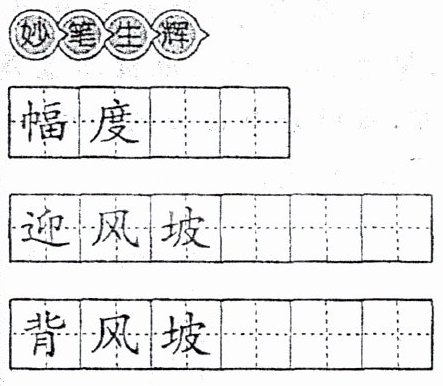 妙笔生辉
幅度
迎风坡
背风坡